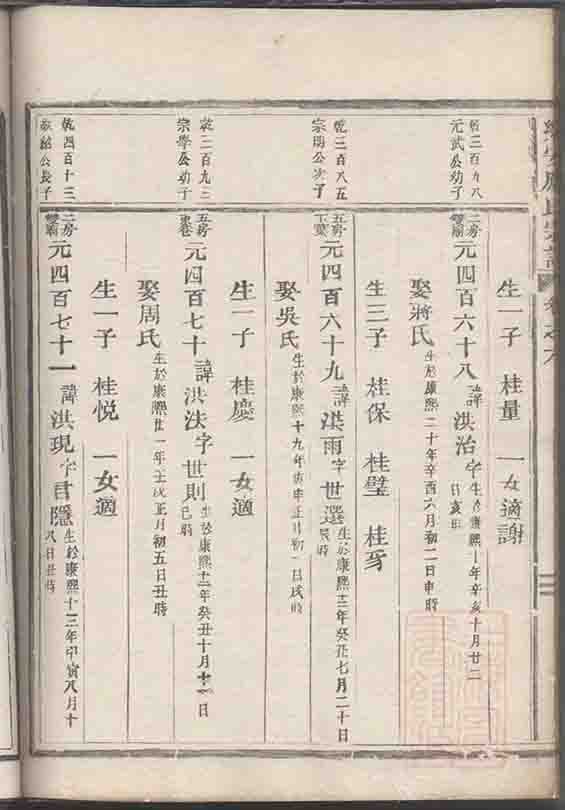 生一子 桂量 一女適謝
乾三百八八
元武公幼子
二房
元四百六十八 諱洪治字 生於康熙十年辛亥十月廿二
日亥時
娶蔣氏 生於康熙二十年辛酉六月初二日申時
生三子 桂保 桂璧 桂芳
乾三百八五
宗明公次子
五房
下葉
元四百六十九 諱洪雨字世選 生於康熙十二年癸丑七月二十日
辰時
娶吳氏 生於康熙十九年庚申正月初一日戌時
生一子 桂慶 一女適
乾三百九三
宗學公幼子
五房
東巷
元四百七十 諱洪法字世則 生於康熙十二年癸丑十月十 日
巳時
娶周氏 生於康熙廿一年壬戌正月初五日丑時
生一子 桂悅 一女適
乾四百十三
公長子
二房
元四百七十一 諱洪現字君隱 生於康熙十三年甲寅八月十
八日丑時